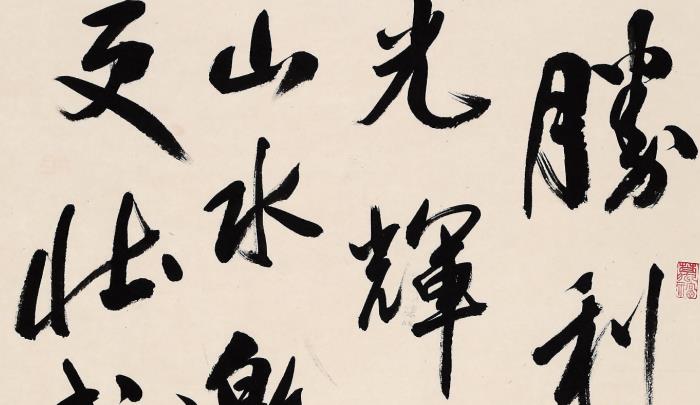 勝利
光輝
山水
更壯